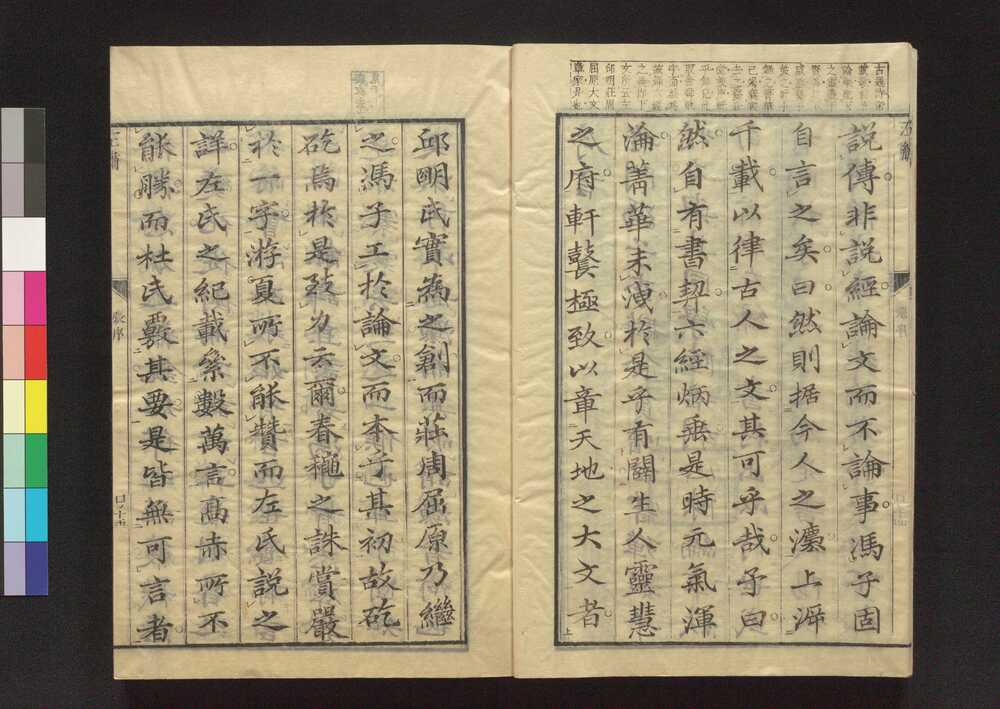 説傳非説經論文而不論事馮子固
自言之矣曰然則据今人之灋上泝
千載以律古人之文其可乎哉予曰
然自有書契六經炳垂是時元氣渾
淪菁華未洩於是乎有闢生人靈慧
之府軒鼚極致以章天地之大文者
邱明氏實為之創而莊周屈原乃繼
之馮子工於論文而本乎其初故矻
矻焉於是致力云爾春穐之誅賞嚴
於一字游夏所不能贊而左氏説之
詳左氏之紀載絫數萬言高赤所不
能勝而杜氏覈其要是皆無可言者